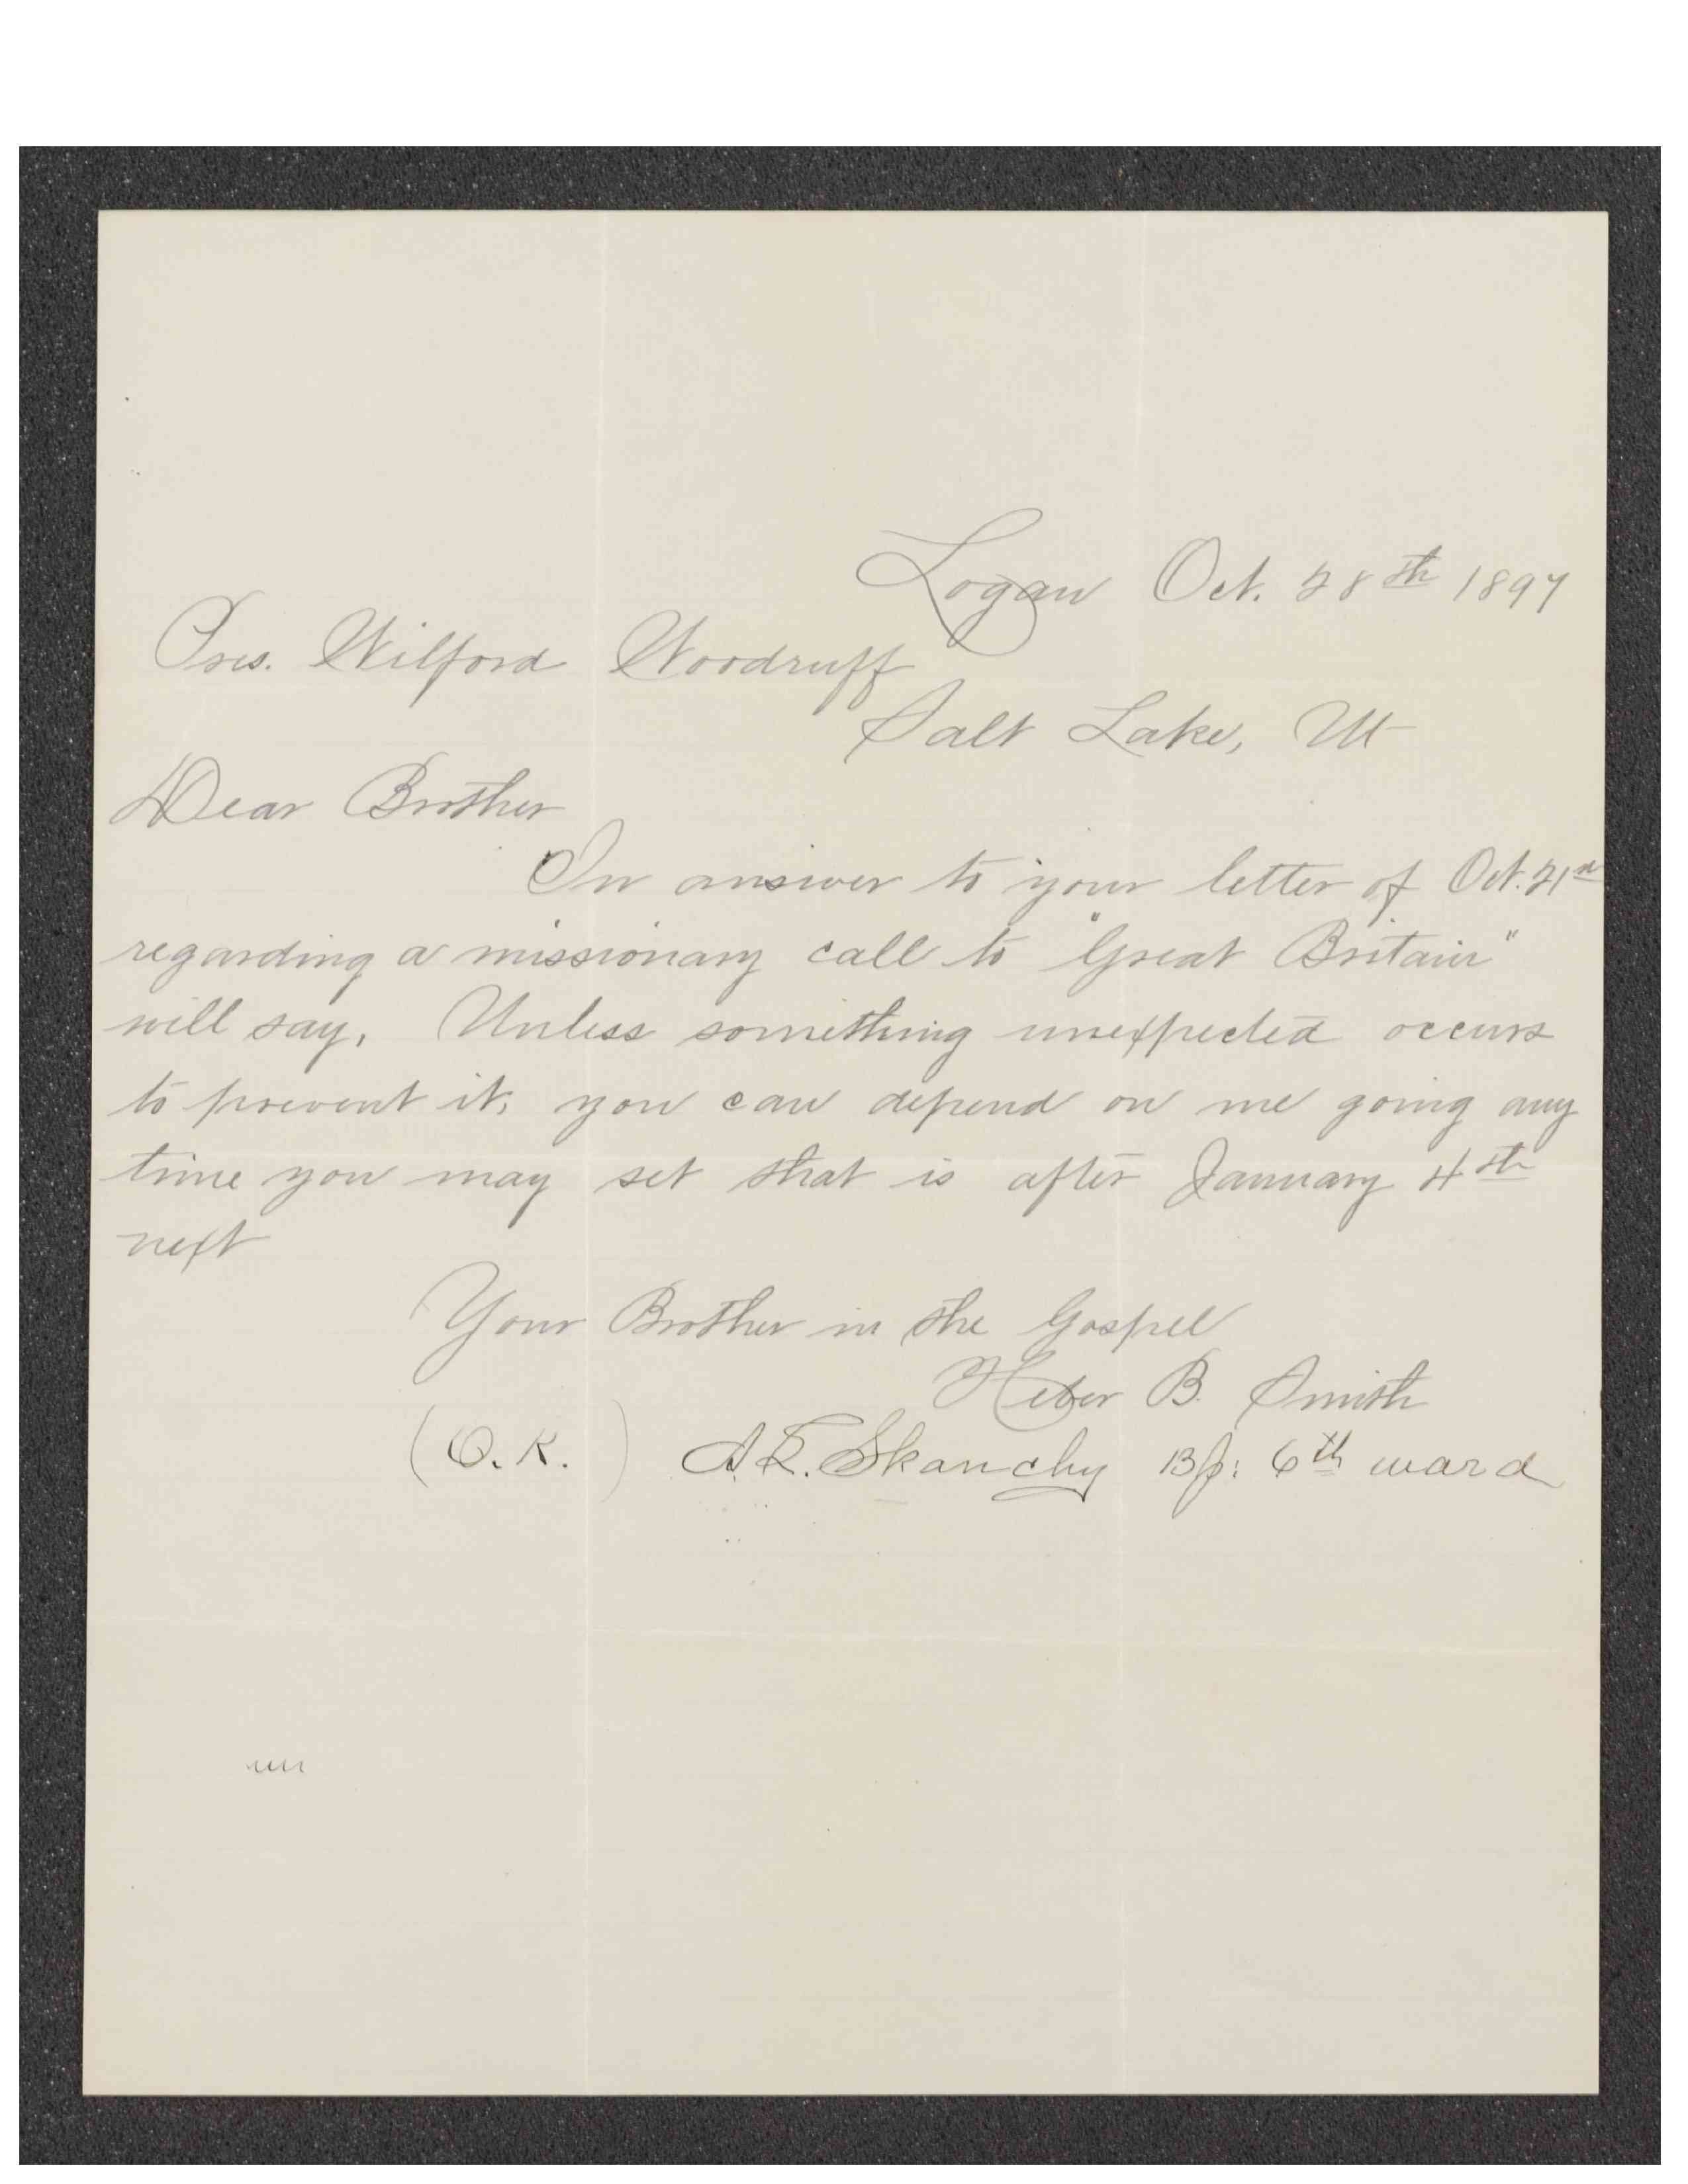 Logan Oct. 28th 1897
Pres. Wilford Woodruff
Salt Lake, Ut
Dear Brother
In answer to your letter of Oct. 21st
regarding a missionary call to "Great Britain"
will say, Unless something unexpected occurs
to prevent it, you can depend on me going any
time you may set that is after January 4th
next
Your Brother in the Gospel
Heber B. Smith
(O.K.) Skanchy Bp: 6th ward